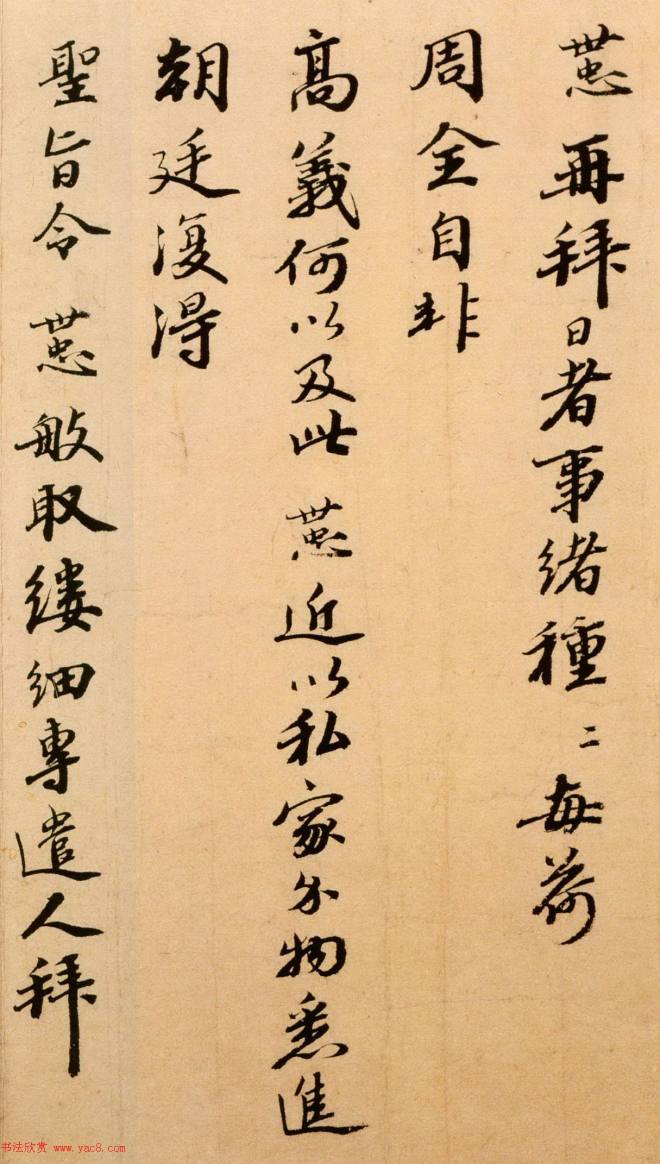 懃再拜日者事緒種〻每荷
周全自非
高義何以及此懃近以私家分物悉進
朝廷復得
聖旨令懃敏取縷細專遣人拜
书法欣赏 www.yac8.com